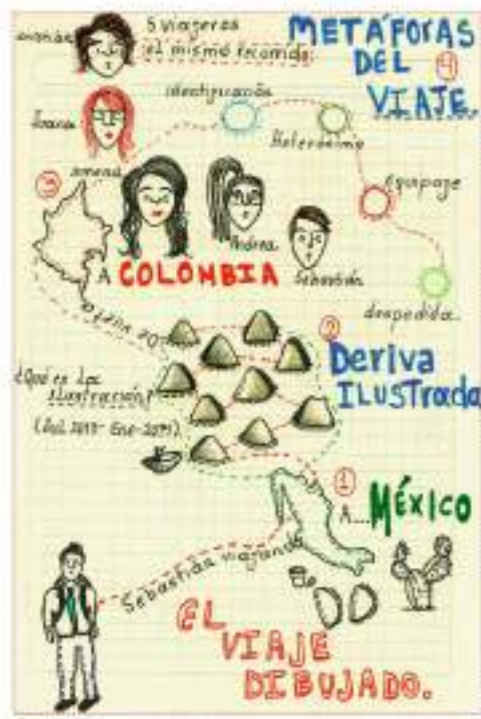 5 viajeros
el mismo recorrido.
METÁFORAS
DEL
4
VIAJE.
identificación
Heterónimo
equipaje
despedida.
Joana
Jimena
3
Andrea
Sebastián
A COLOMBIA
2
Deriva
ILUSTrada
¿Qué es la
ilustración?
1
A... MÉXICO
Sebastián viajando
EL
VIAJE
DIBUJADO.